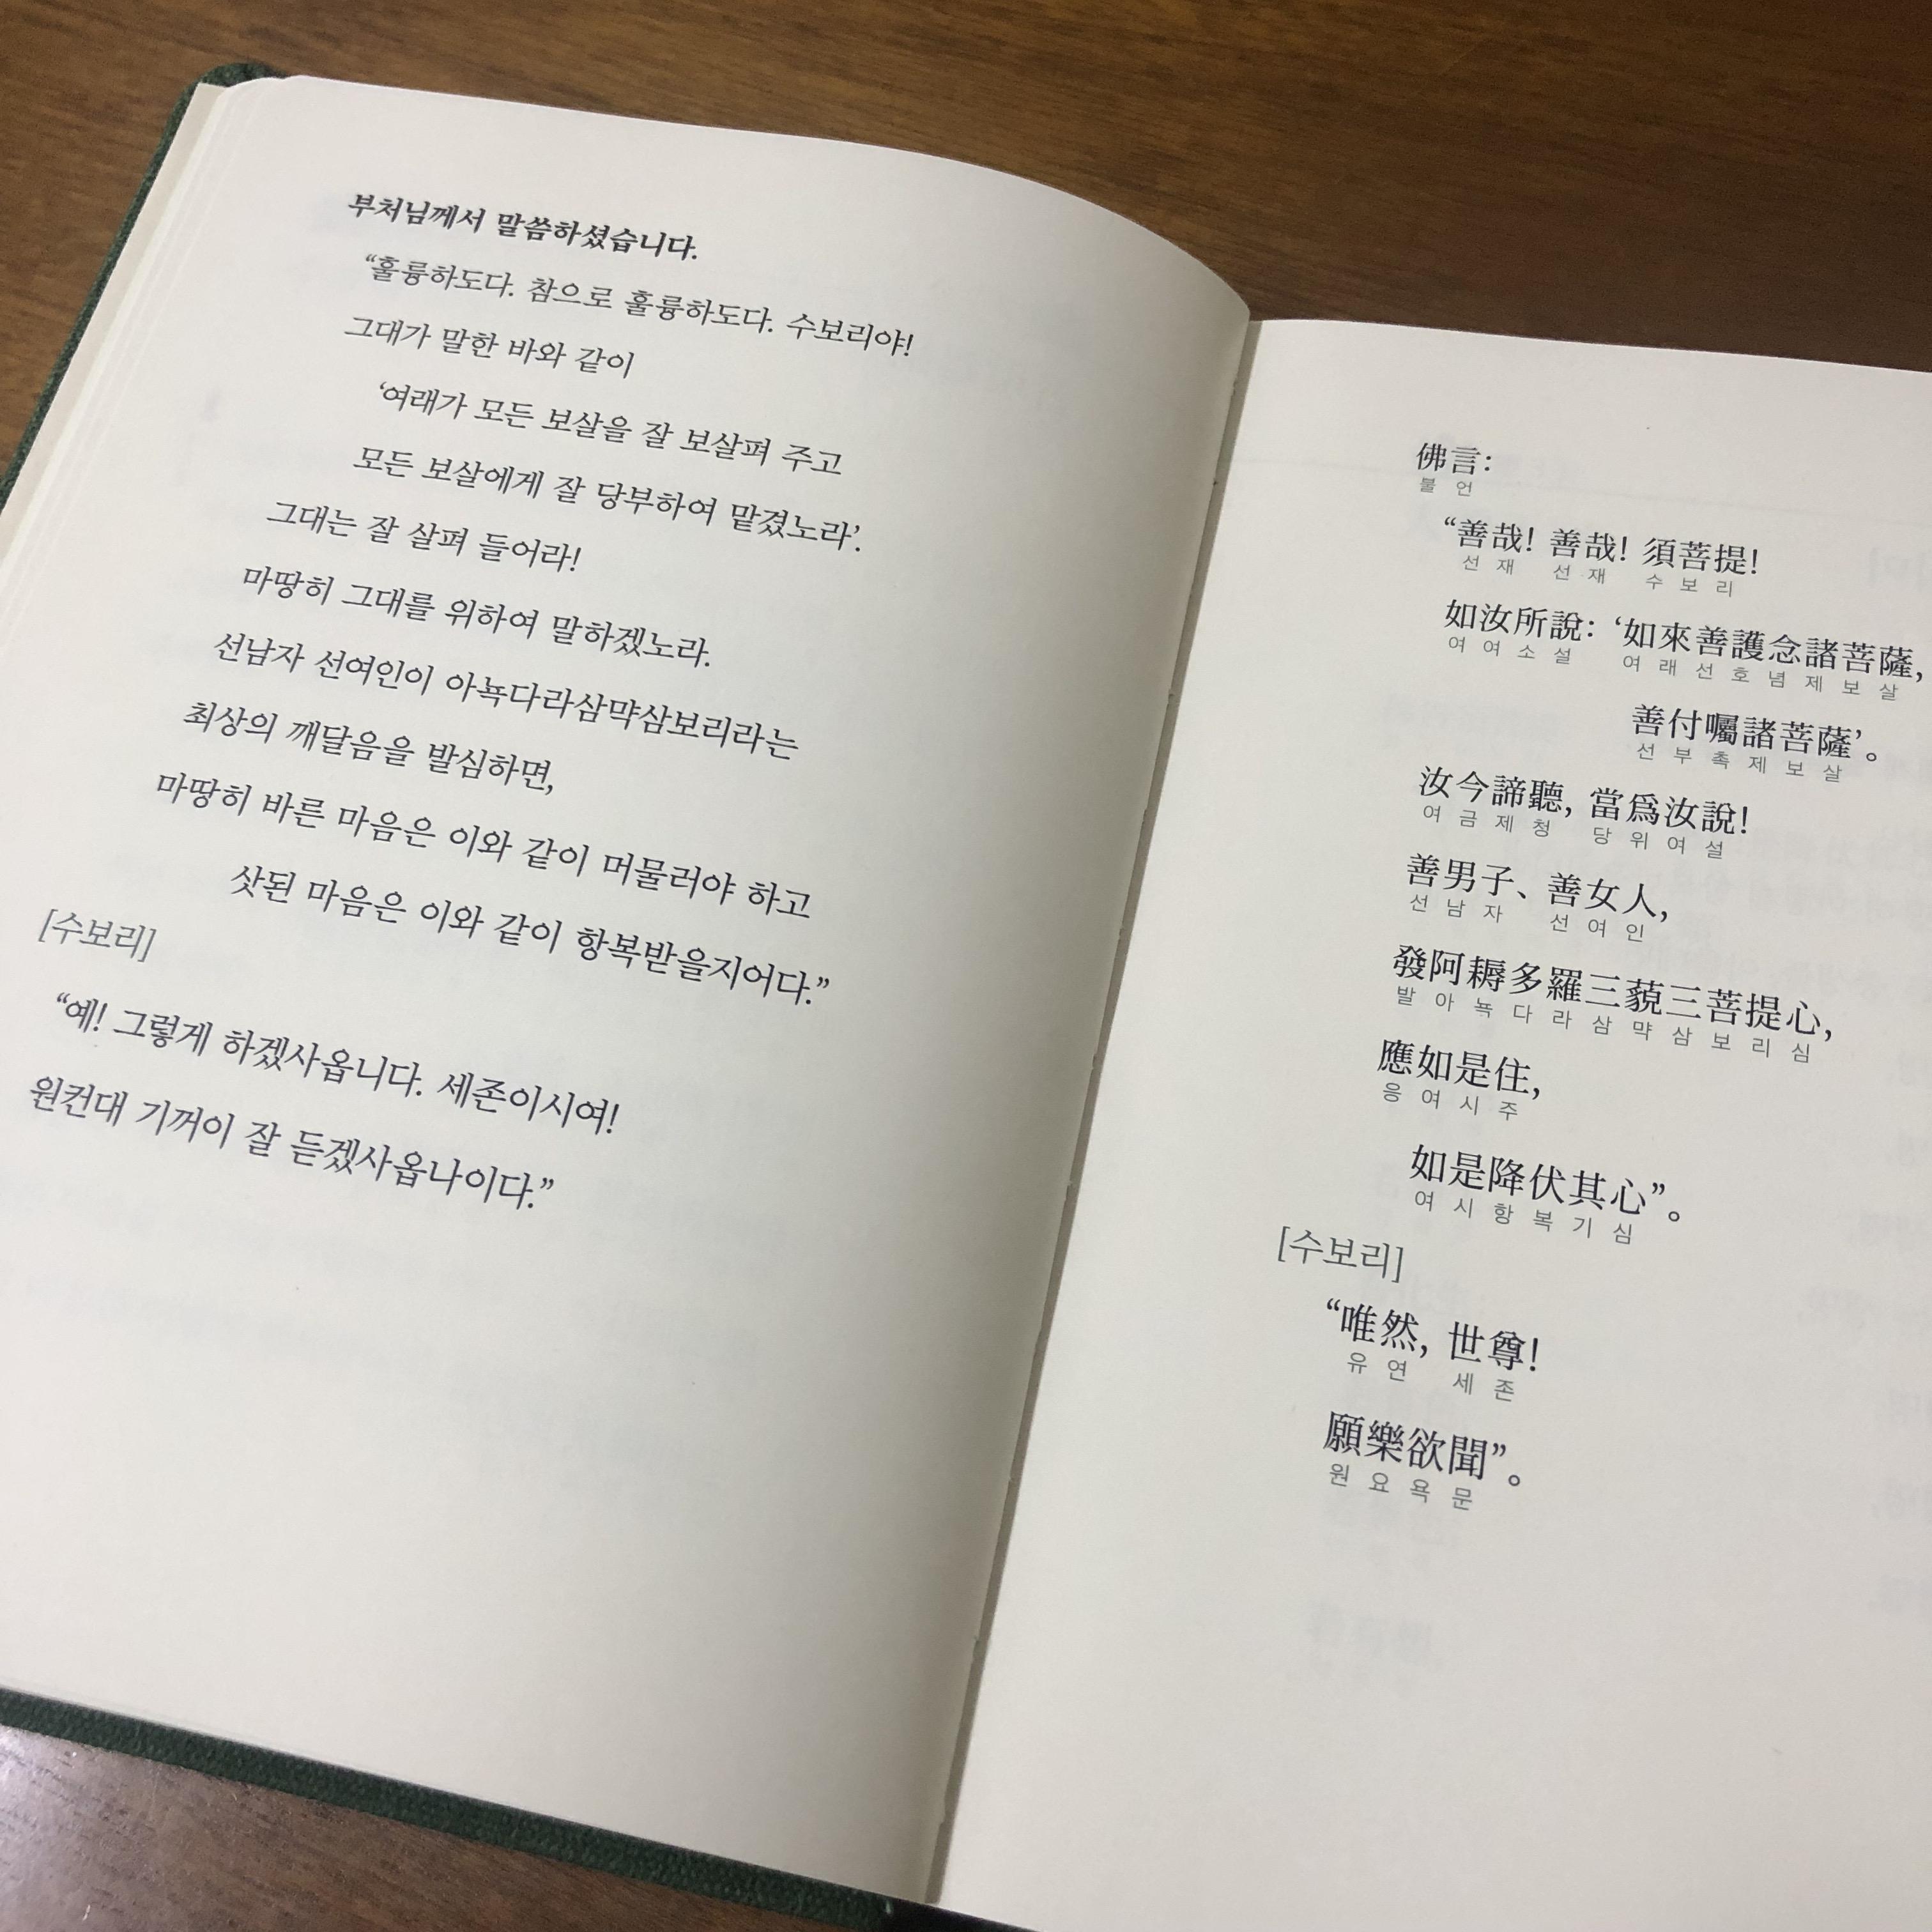 부처님께서 말씀하셨습니다.
“훌륭하도다. 참으로 훌륭하도다. 수보리야!
그대가 말한 바와 같이
‘여래가 모든 보살을 잘 보살펴 주고
모든 보살에게 잘 당부하여 맡겼노라’.
그대는 잘 살펴 들어라!
마땅히 그대를 위하여 말하겠노라.
선남자 선여인이 아뇩다라삼먁삼보리라는
최상의 깨달음을 발심하면,
마땅히 바른 마음은 이와 같이 머물러야 하고
삿된 마음은 이와 같이 항복받을지어다.”
[수보리]
“예! 그렇게 하겠사옵니다. 세존이시여!
원컨대 기꺼이 잘 듣겠사옵나이다.”
佛言:
불 언
“善哉! 善哉! 須菩提!
선 재 선 재 수 보 리
如汝所說: ‘如來善護念諸菩薩,
여 여 소 설 여 래 선 호 념 제 보 살
善付囑諸菩薩’。
선 부 촉 제 보 살
汝今諦聽, 當爲汝說!
여 금 제 청 당 위 여 설
善男子、善女人,
선 남 자 선 여 인
發阿耨多羅三藐三菩提心,
발 아 뇩 다 라 삼 먁 삼 보 리 심
應如是住,
응 여 시 주
如是降伏其心”。
여 시 항 복 기 심
[수보리]
“唯然, 世尊!
유 연 세 존
願樂欲聞”。
원 요 욕 문